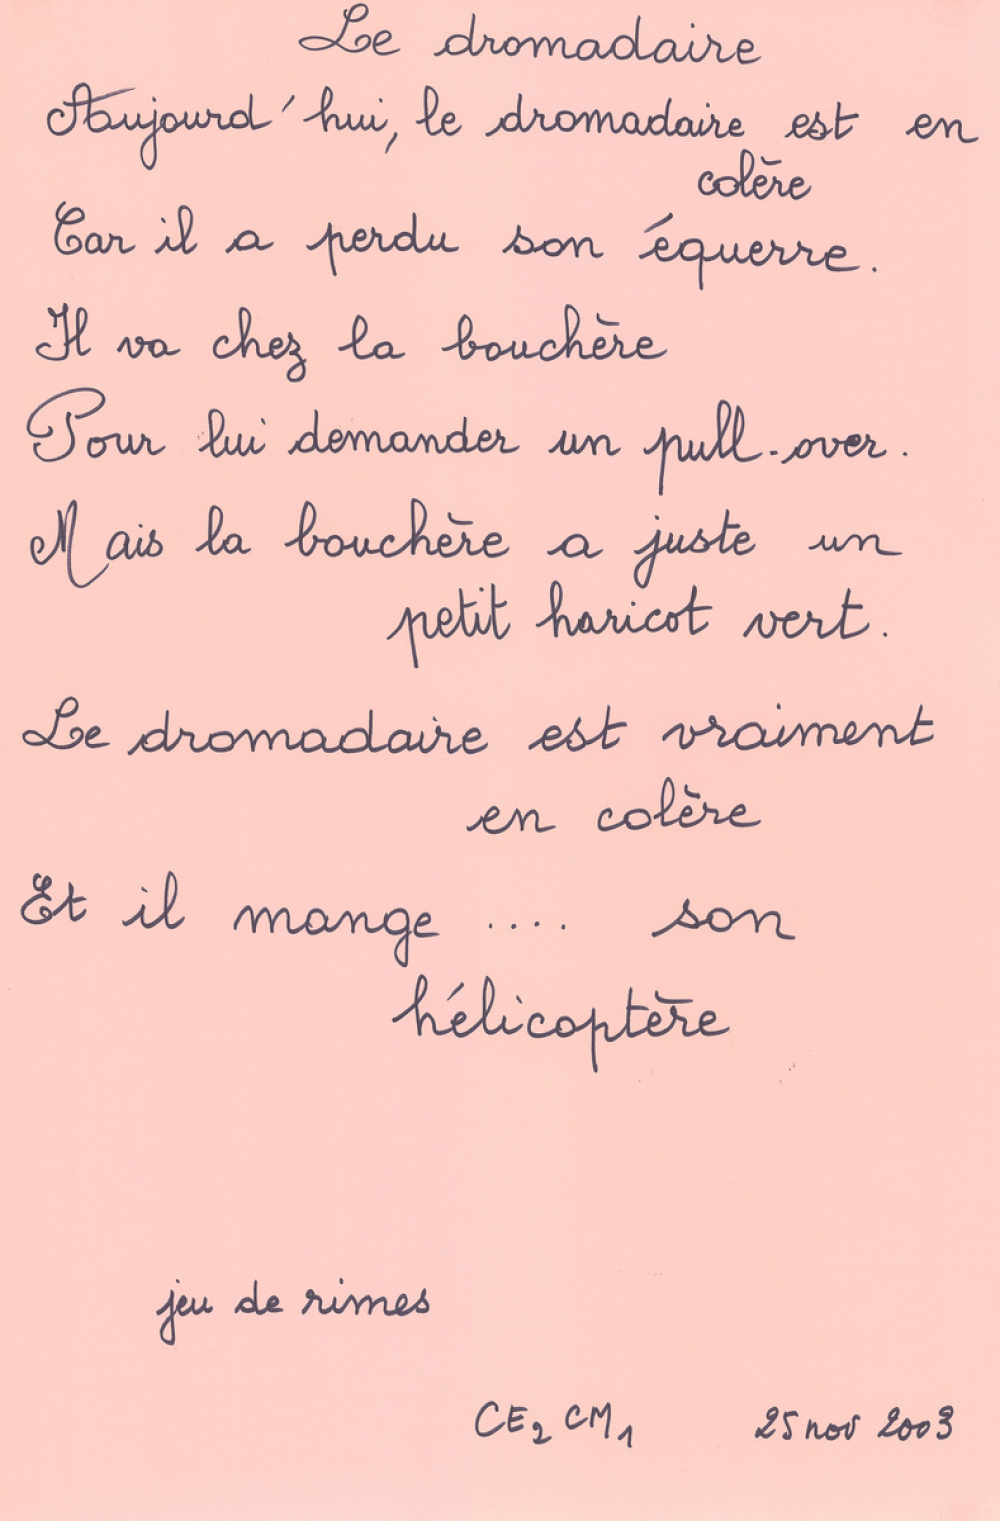 Le dromadaire
Aujourd'hui, le dromadaire est en
colère
Car il a perdu son équerre.
Il va chez la bouchère
Pour lui demander un pull-over.
Mais la bouchère a juste un
petit haricot vert.
Le dromadaire est vraiment
en colère
Et il mange .... son
hélicoptère
jeu de rimes
CE2 CM1 25 nov 2003